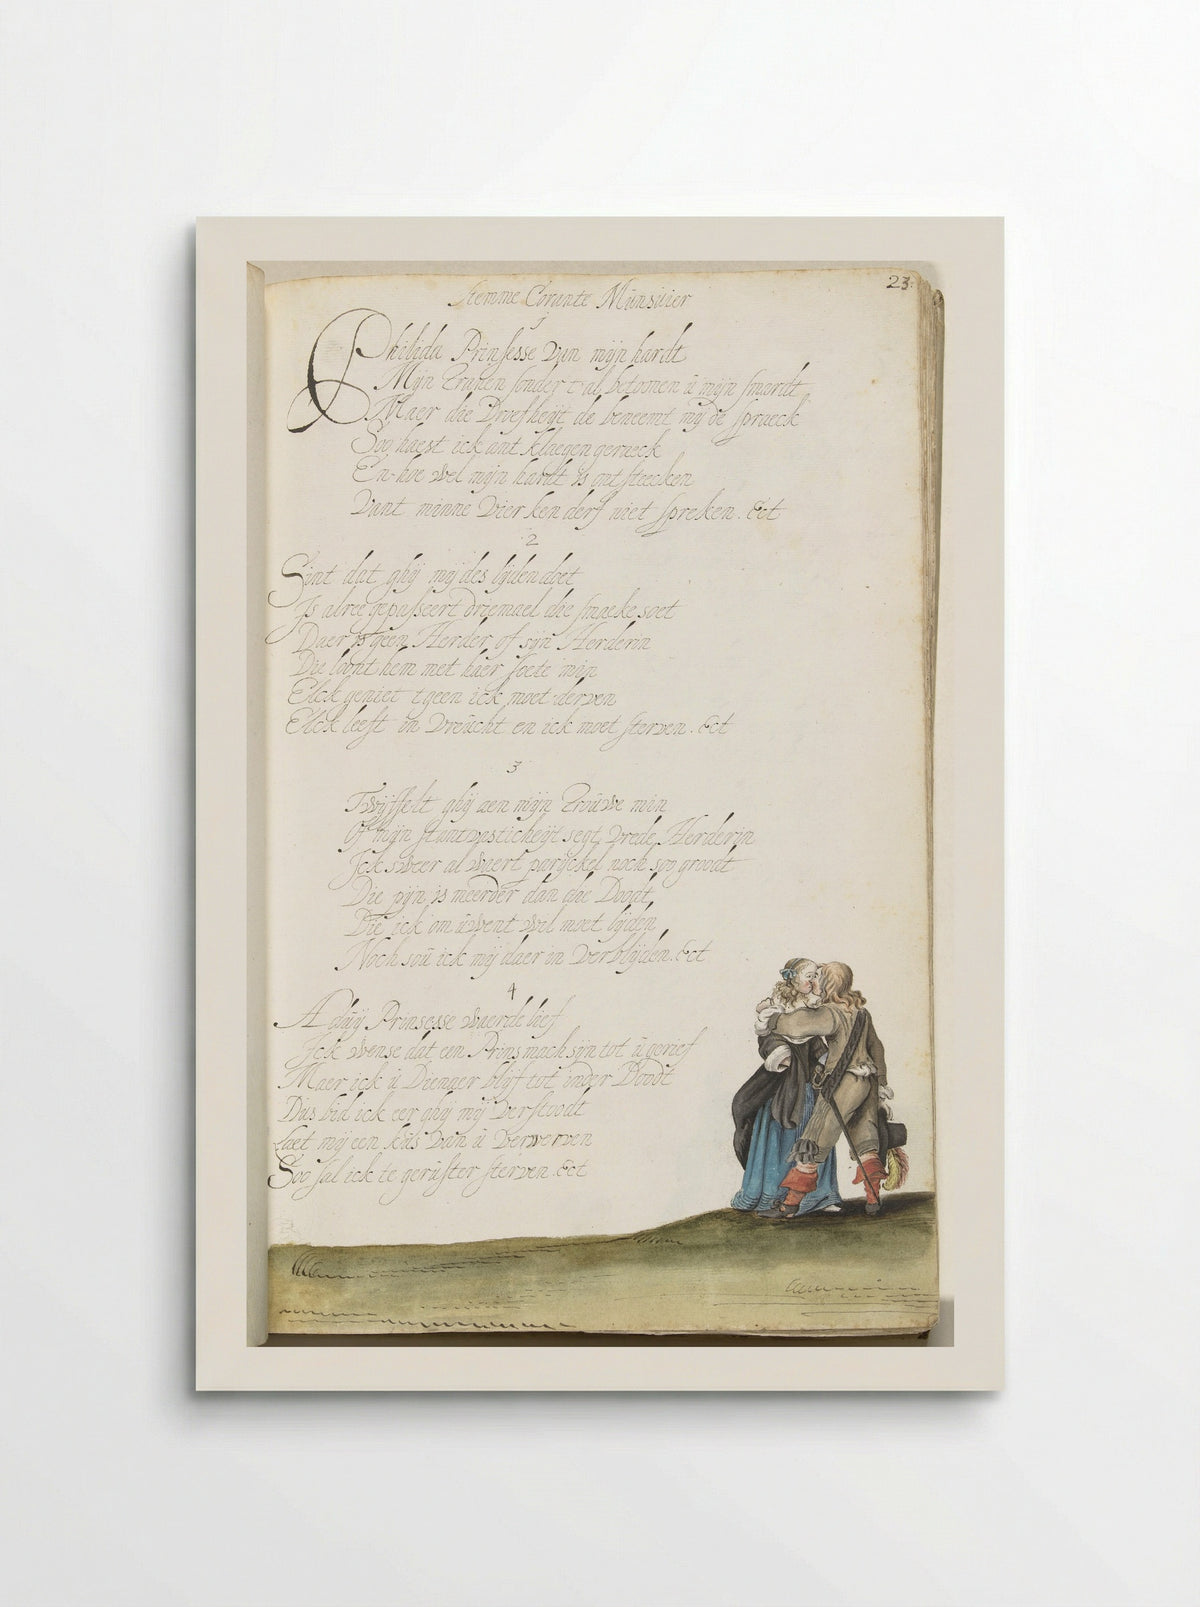 23.
Stemme Corante Munsuier
1
Philida Prinsesse van mijn hardt
Mijn Tranen sonder tal betonen ü mijn smardt
Maer die Droefheijt de beneemt mij de spraeck
Soo haest ick ant klaegen geraeck
En-hoe wel mijn hardt is ontsteecken
Vant minne Vier ken derf niet spreken. Ect
2
Sint dat ghij mij des lijden doet
Is alree gepasseert driemael die smaeke soet
Daer is geen Herder of sijn Herderin
Die loont hem met haer soete min
Elck geniet tgeen ick moet derven
Elck leeft in Vreücht en ick moet sterven. Ect
3
Twijffelt ghij aen mijn Trouwe min
Of mijn stantvasticheijt segt vrede Herderin
Ick sweer al waert parijckel noch soo groodt
Die pijn is meerder dan die Doodt
Die ick om üwent wil moet lijden
Noch soü ick mij daer in Verblijden. Ect
4
Adüij Prinsesse waerde lief
Ick wense dat een Prins mach sijn tot ü gerief
Maer ick ü Dienaer blijf tot inder Doodt
Dus bid ick eer ghij mij verstoodt
Laet mij een küs van ü verwerven
Soo sal ick te gerüster sterven. Ect